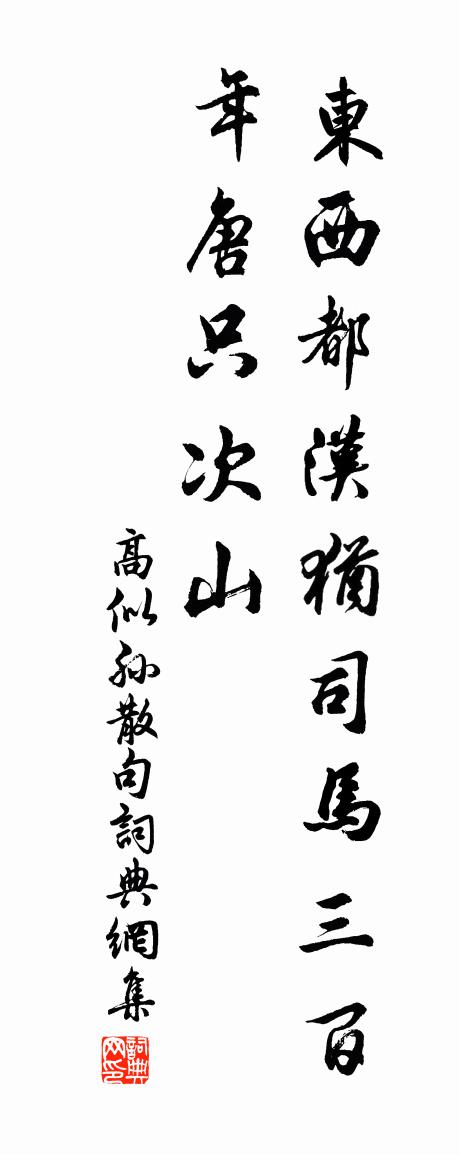 東西都漢猶司馬三百
年唐只次山
高似孫散句詞典網集
詞典
网印